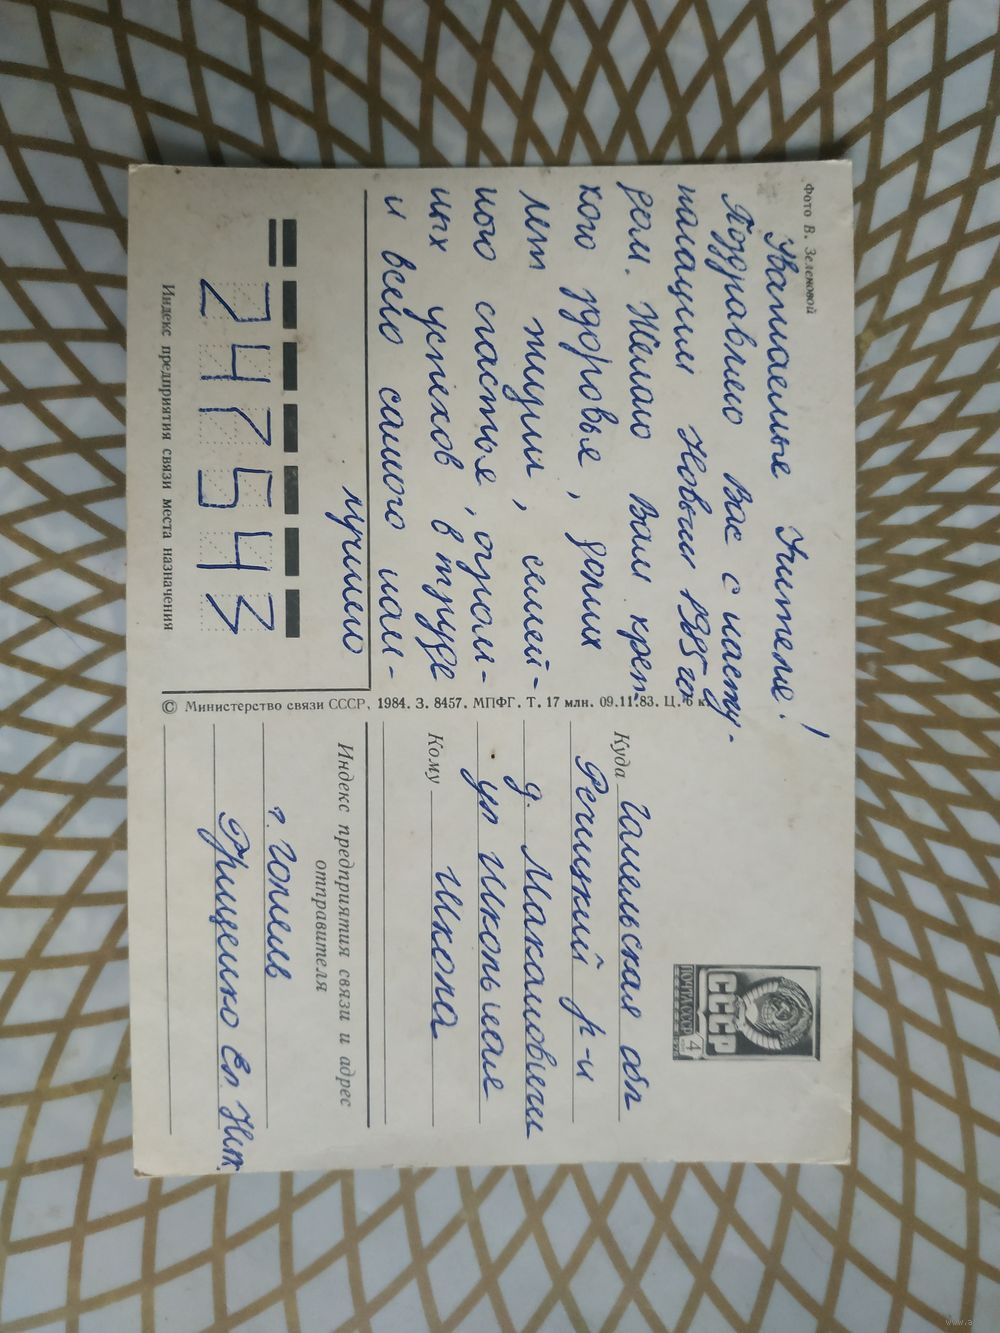 Фото В. Зеленовой
Уважаемые Учителя!
Поздравляю Вас с насту-
пающим Новым 1985 го
дом. Желаю Вам креп
кого здоровья, долгих
лет жизни, семей-
ного счастья, огром-
ных успехов в труде
и всего самого наи-
лучшего
247543
Индекс предприятия связи места назначения
© Министерство связи СССР, 1984. З. 8457. МПФГ. Т. 17 млн. 09.11.83. Ц. 6 к.
СССР
ПОЧТА СССР 4
Куда Гомельская обл
Речицкий р-н
д.
ул Школьная
Кому Школа
Индекс предприятия связи и адрес
отправителя
г. Гомель
Грищенко Ел